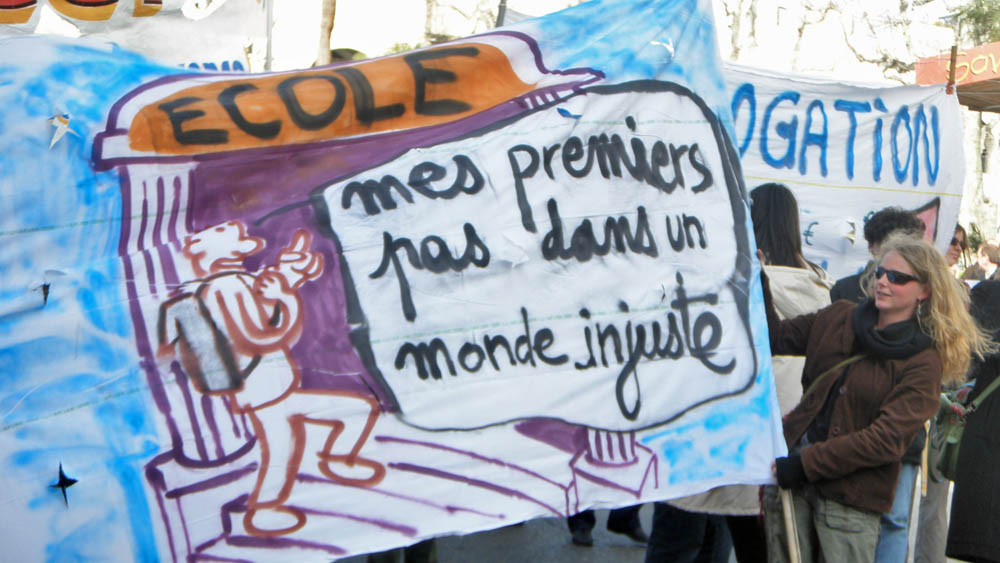 ECOLE
mes premiers
pas dans un
monde injuste
OGATiON